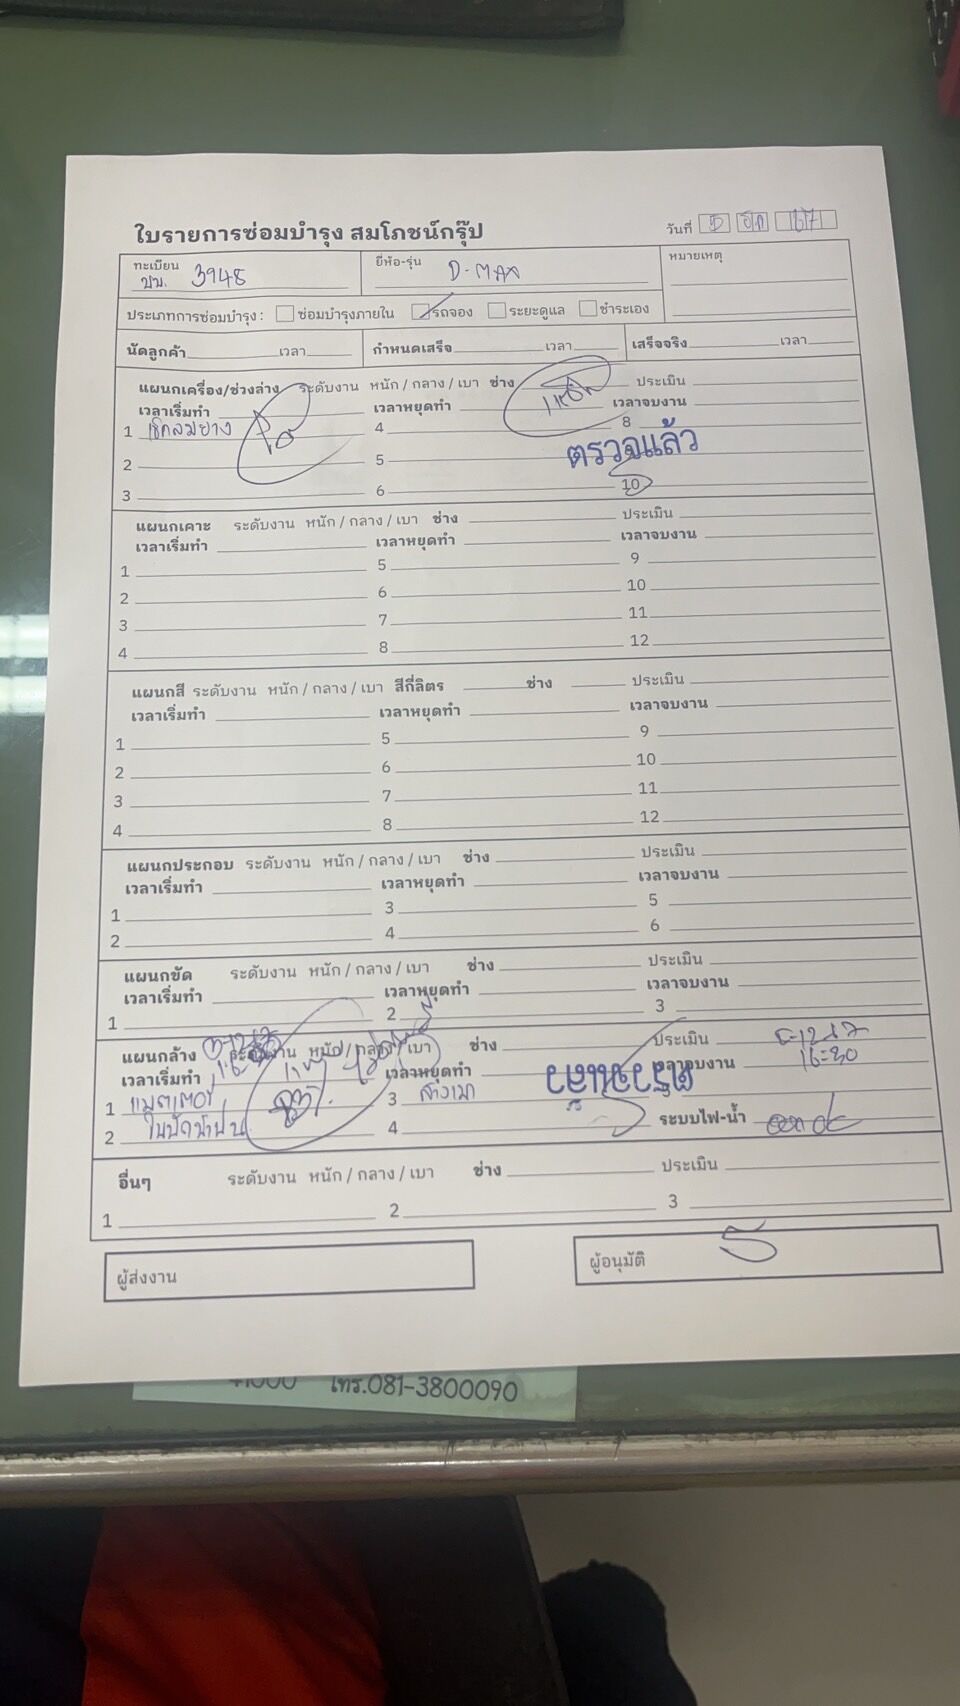 ใบรายการซ่อมบำรุง สมโภชน์กรุ๊ป
วันที่ 5 ธค 67
ทะเบียน ขม. 3948 ยี่ห้อ-รุ่น D-MAX หมายเหตุ
ประเภทการซ่อมบำรุง : ซ่อมบำรุงภายใน รถจอง ระยะดูแล ชำระเอง
นัดลูกค้า เวลา กำหนดเสร็จ เวลา เสร็จจริง เวลา
แผนกเครื่อง/ช่วงล่าง ระดับงาน หนัก / กลาง / เบา ช่าง ประเมิน
เวลาเริ่มทำ เวลาหยุดทำ เวลาจบงาน
1 เช็คลมยาง 4 8
ตรวจแล้ว
2 5
3 6 10
แผนกเคาะ ระดับงาน หนัก / กลาง / เบา ช่าง ประเมิน
เวลาเริ่มทำ เวลาหยุดทำ เวลาจบงาน
1 5 9
2 6 10
3 7 11
4 8 12
แผนกสี ระดับงาน หนัก / กลาง / เบา สีกี่ลิตร ช่าง ประเมิน
เวลาเริ่มทำ เวลาหยุดทำ เวลาจบงาน
1 5 9
2 6 10
3 7 11
4 8 12
แผนกประกอบ ระดับงาน หนัก / กลาง / เบา ช่าง ประเมิน
เวลาเริ่มทำ เวลาหยุดทำ เวลาจบงาน
1 3 5
2 4 6
แผนกขัด ระดับงาน หนัก / กลาง / เบา ช่าง ประเมิน
เวลาเริ่มทำ เวลาหยุดทำ เวลาจบงาน
1 2 3
แผนกล้าง ระดับงาน หนัก / กลาง / เบา ช่าง ประเมิน 5-12-67
เวลาเริ่มทำ เวลาหยุดทำ เวลาจบงาน 16-30
1 แบตเตอรี่ 3 ล้างเบา
ตรวจแล้ว
2 ใบปัดน้ำฝน 4 ระบบไฟ-น้ำ
อื่นๆ ระดับงาน หนัก / กลาง / เบา ช่าง ประเมิน
1 2 3
ผู้ส่งงาน ผู้อนุมัติ
41000 โทร.081-3800090